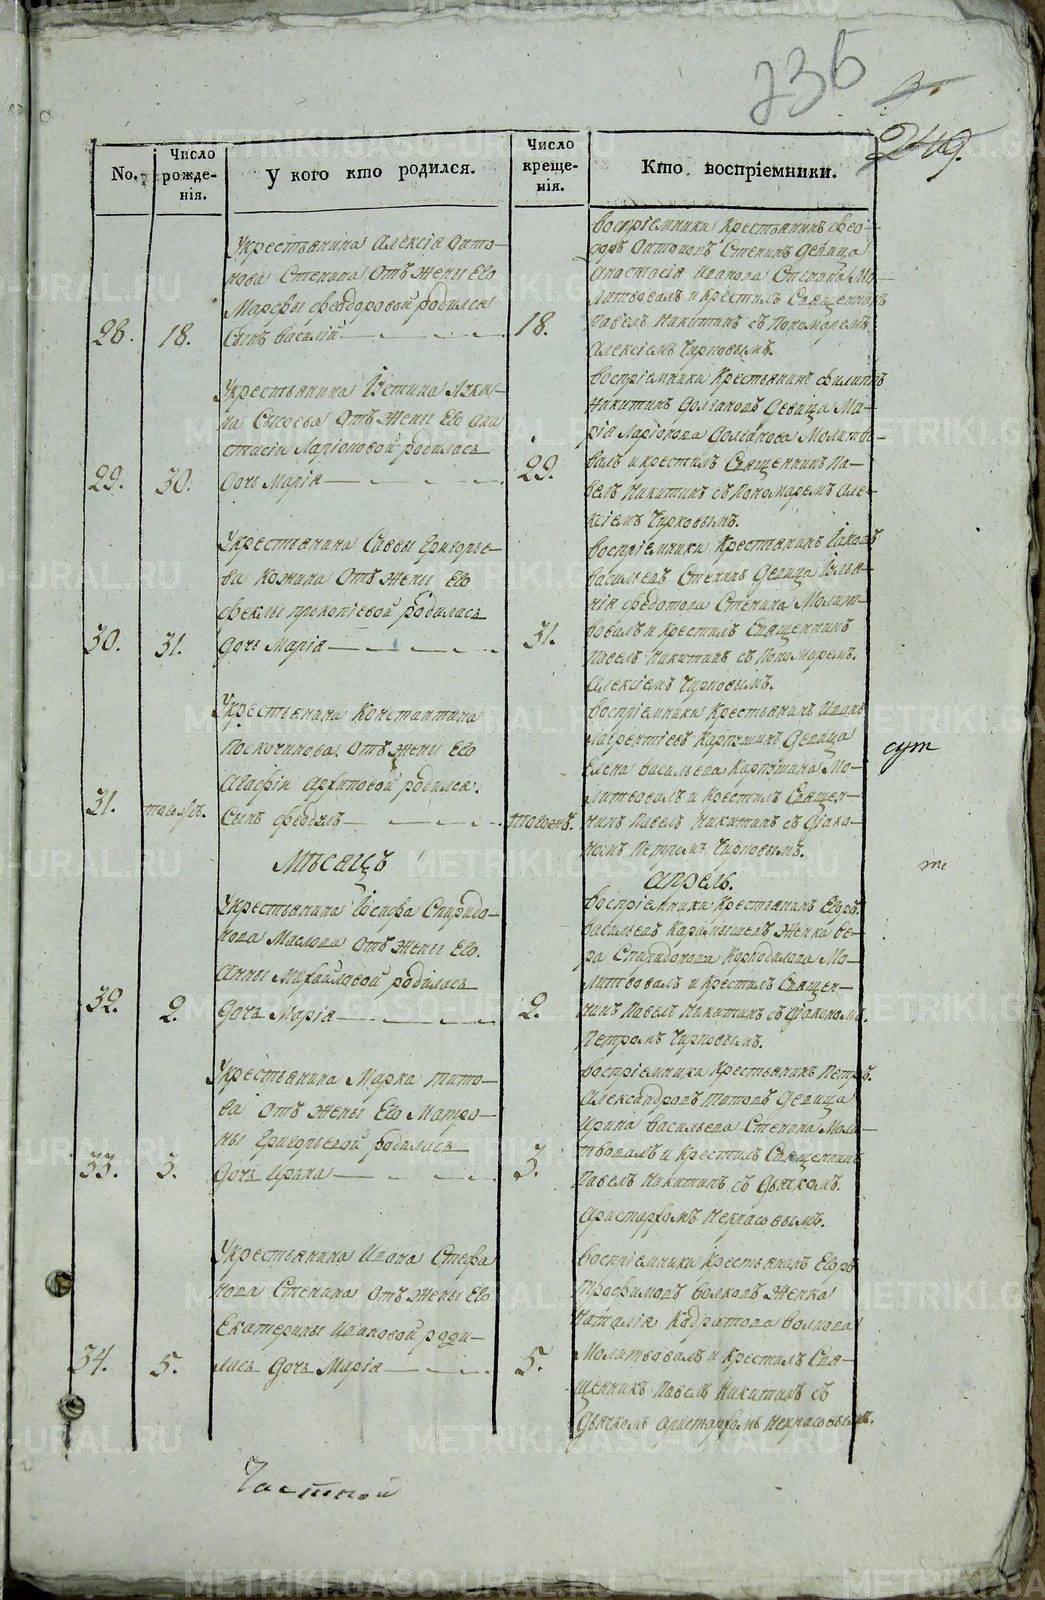 236
249.
No.
Число рожденія.
У кого кто родился.
Число крещенія.
Кто воспріемники.
28.
18.
Укрестьянина Алексія Анто-
нова Стенина Отъ жены Ево
Марѳы Ѳеодоровой родился
Сынъ Василій
18.
Воспріемники Крестьянинъ Ѳео-
доръ Антоновъ Стенинъ Девица
Анастасія Иванова Стенина Мо-
литвовалъ и Крестилъ Священникъ
Павелъ Никитинъ съ Пономаремъ
Алексіемъ Чирковымъ.
29.
30.
Укрестьянина Іустина
Сысоева Отъ жены Ево Ана
стасіи Ларіоновой родилась
Дочь Марія
29.
Воспріемники Крестьянинъ Филиппъ
Никитинъ Долгановъ Девица Ма-
рія Ларіонова Долганова Молитво-
валъ и крестилъ Священникъ Па-
велъ Никитинъ съ Пономаремъ Але-
ксіемъ Чирковымъ.
30.
31.
Укрестьянина Саввы Григорье-
ва Кожина Отъ жены Ево
Ѳеклы прокопіевой родилась
Дочь Марія
31.
Воспріемники Крестьянинъ Іаковъ
Васильевъ Стенинъ Девица Іулья-
нія Ѳедотова Стенина Молит-
вовалъ и Крестилъ Священникъ
Павелъ Никитинъ съ Пономаремъ.
Алексіемъ Чирковымъ.
31.
тогожъ.
Укрестьянина Константина
Поскочинова. Отъ жены Ево
Агафіи Архиповой родился.
Сынъ Ѳеодулъ
тогожъ.
Воспріемники Крестьянинъ Иванъ
Лаврентіевъ Карпушинъ Девица
Елена Васильева Карпушина Мо-
литвовалъ и Крестилъ Священ-
никъ Павелъ Никитинъ съ Діяко-
номъ Петромъ Чирковымъ.
сут
Мѣсяцъ
апрель.
те
32.
2.
Укрестьянина Іосифа Спиридо-
нова Маслова Отъ жены Ево.
Анны Михайловой родилась
Дочь Марія
2.
Воспріемники Крестьянинъ Егоръ.
Васильевъ Карамышевъ Женка Ве-
ра Спиридонова Коркодинова Мо-
литвовалъ и Крестилъ Священ-
никъ Павелъ Никитинъ съ діякономъ.
Петромъ Чирковымъ.
33.
3.
Укрестьянина Марка Тито-
ва Отъ жены Ево Матро-
ны Григорьевой родилась
Дочь Ирина
3.
Воспріемники Крестьянинъ Петръ.
Александровъ Титовъ Девица
Ирина Васильева Стенина Моли-
твовалъ и Крестилъ Священникъ
Павелъ Никитинъ съ Дьячкомъ.
Аристархомъ Некрасовымъ.
34.
5.
Укрестьянина Ивана Стефа
нова Стенина Отъ жены Ево
Екатерины Ивановой роди-
лась Дочь Марія
5.
Воспріемники Крестьянинъ Егоръ
Трофимовъ Волковъ Женка
Наталія Кодратова Волкова
Молитвовалъ и Крестилъ Свя-
щенникъ Павелъ Никитинъ съ
Дьячкомъ Аристархомъ Некрасовымъ.
Частной
METRIKI.GASO-URAL.RU